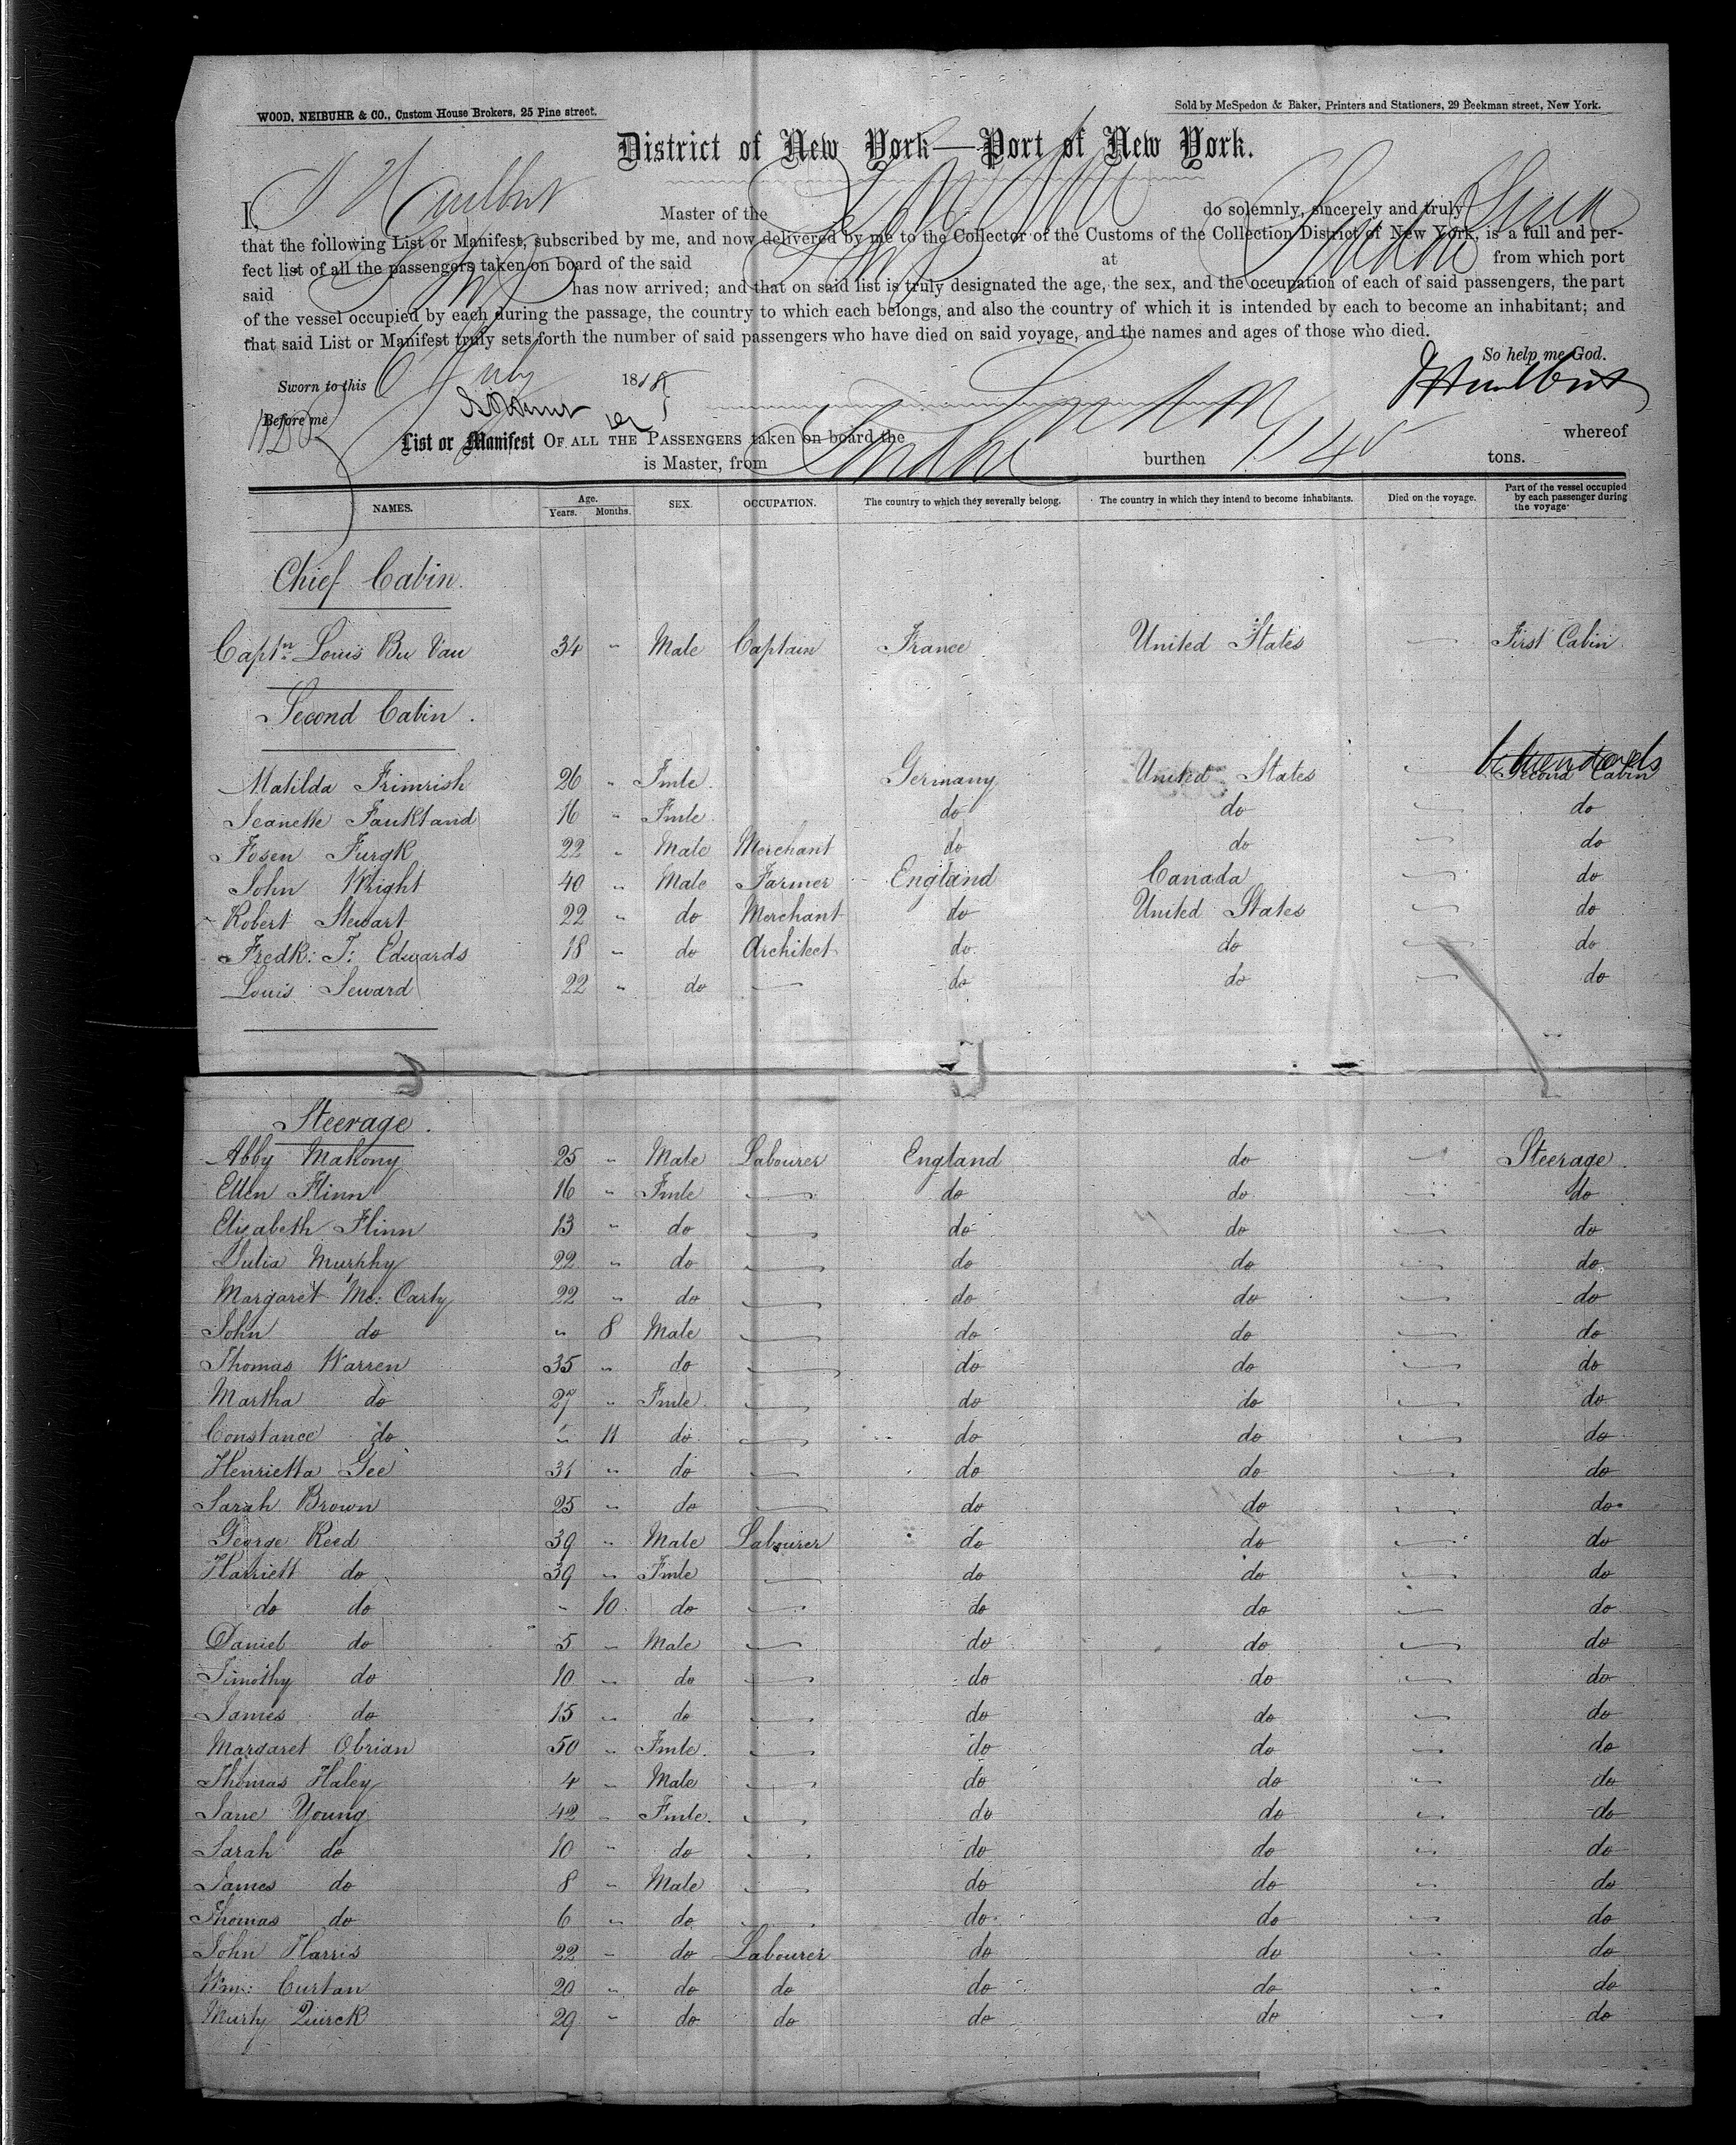 WOOD, NEIBUHR & CO., Custom House Brokers, 25 Pine street.
Sold by McSpedon & Baker, Printers and Stationers, 29 Beekman street, New York.
District of New York—Port of New York.
I, Master of the do solemnly, sincerely and truly
that the following List or Manifest, subscribed by me, and now delivered by me to the Collector of the Customs of the Collection District of New York, is a full and per-
fect list of all the passengers taken on board of the said Ship at London from which port
said Ship has now arrived; and that on said list is truly designated the age, the sex, and the occupation of each of said passengers, the part
of the vessel occupied by each during the passage, the country to which each belongs, and also the country of which it is intended by each to become an inhabitant; and
that said List or Manifest truly sets forth the number of said passengers who have died on said voyage, and the names and ages of those who died.
So help me God.
Sworn to this 6 July 18
Before me
List or Manifest OF ALL THE PASSENGERS taken on board the whereof
is Master, from London burthen tons.
NAMES. Age. Years. Months. SEX. OCCUPATION. The country to which they severally belong. The country in which they intend to become inhabitants. Died on the voyage. Part of the vessel occupied by each passenger during the voyage
Chief Cabin.
Captn Louis Bu Vau 34 " Male Captain France United States — First Cabin
Second Cabin.
Matilda Frimrish 26 " Fmle Germany United States — Second Cabin
Jeanette Faukland 16 " Fmle do do — do
Fosen Furgk 22 " Male Merchant do do — do
John Wright 40 " Male Farmer England Canada — do
Robert Stewart 22 " do Merchant do United States — do
Fredk: T: Edwards 18 " do Architect do do — do
Louis Seward 22 " do — do do — do
Steerage.
Abby Mahony 25 " Male Labourer England do — Steerage
Ellen Flinn 16 " Fmle — do do — do
Elizabeth Flinn 13 " do — do do — do
Julia Murphy 22 " do — do do — do
Margaret Mc: Carty 22 " do — do do — do
John do " 8 Male — do do — do
Thomas Warren 35 " do — do do — do
Martha do 27 " Fmle — do do — do
Constance do " 11 do — do do — do
Henrietta Gee 31 " do — do do — do
Sarah Brown 25 " do — do do — do
George Reed 39 " Male Labourer do do — do
Harriett do 39 " Fmle — do do — do
do do " 10 do — do do — do
Daniel do 5 " Male — do do — do
Timothy do 10 " do — do do — do
James do 15 " do — do do — do
Margaret Obrian 50 " Fmle — do do — do
Thomas Haley 4 " Male — do do — do
Jane Young 42 " Fmle — do do — do
Sarah do 10 " do — do do — do
James do 8 " Male — do do — do
Thomas do 6 " do — do do — do
John Harris 22 " do Labourer do do — do
Wm: Curtan 20 " do do do do — do
Murty Quirck 29 " do do do do — do